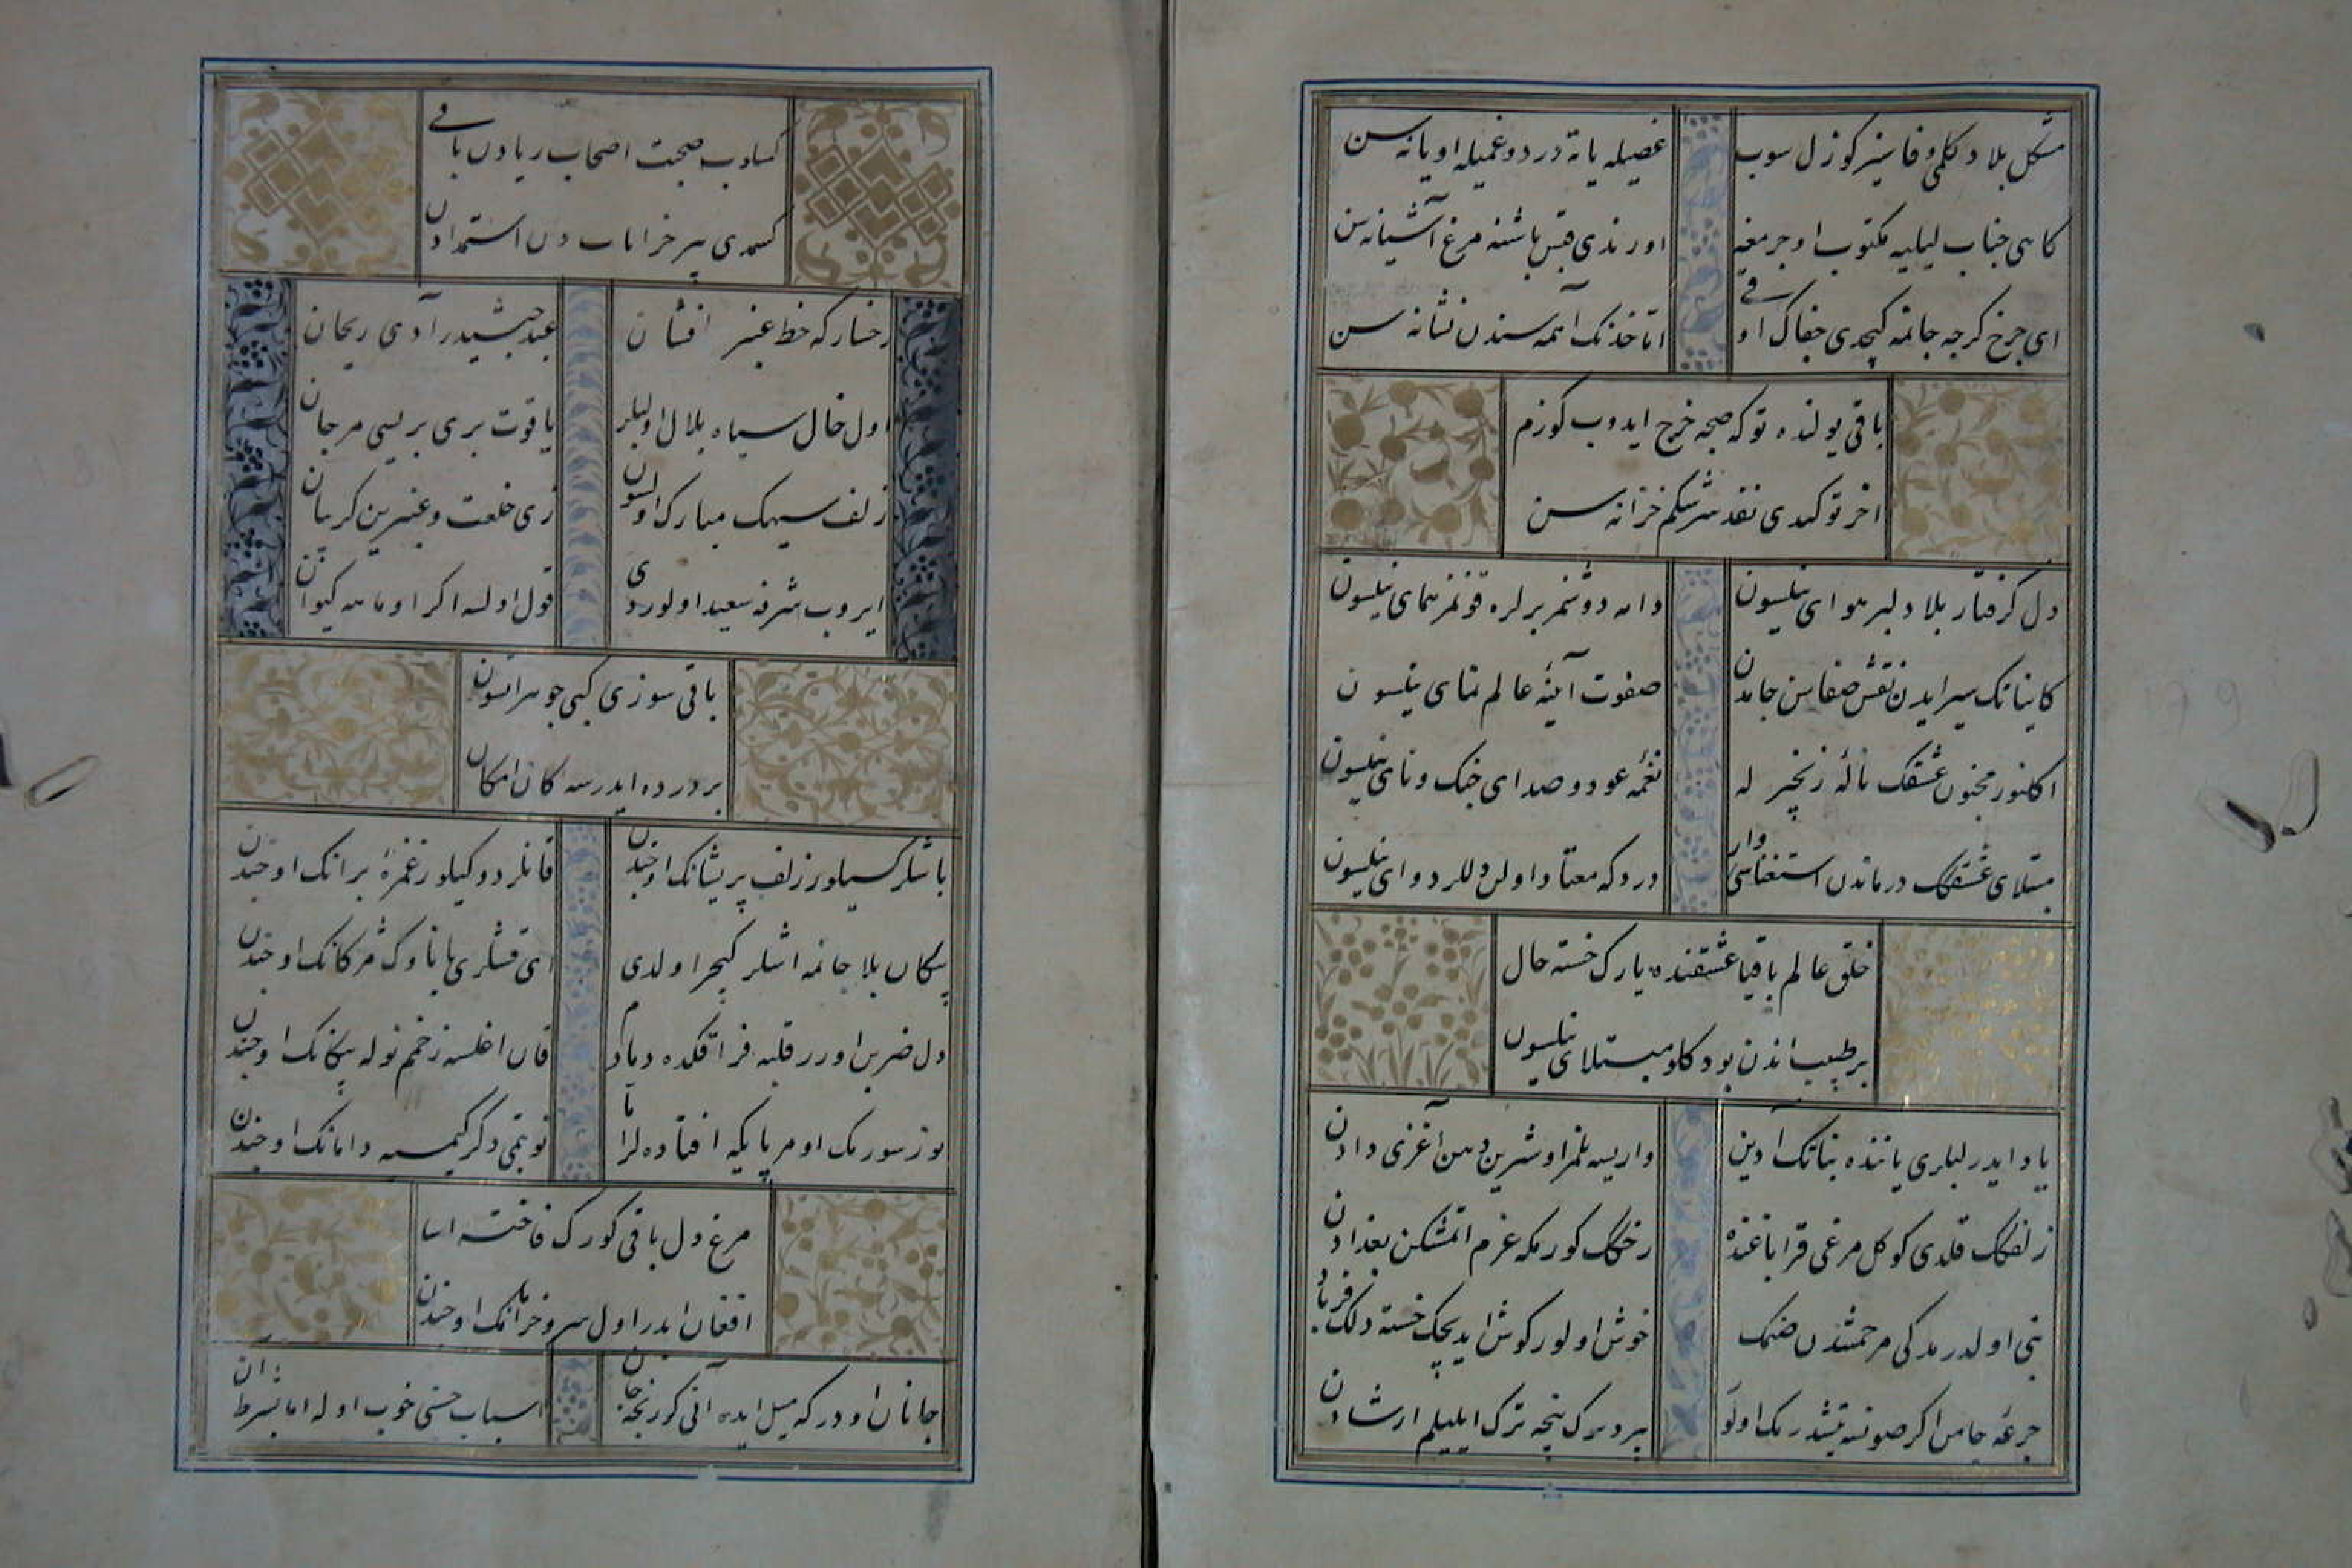 مشكل بلا دكلمی وفاسیز كوزل سوب
غصیله یانه در دو غمیله اویانه سن
كاهی جناب لیلیه مكتوب اوجرمغه
اورندی قیس باشنه مرغ آشیانه سن
ای چرخ كرچه جانمه كچدی جفاك اوقی
اما خدنك آهمه سندن نشانه سن
باقی یولنده توكمكه خرج ایدوب كوزم
اخر توكندی نقد سرشكم خزانه سن
دل كرفتار بلا دلبر هوای نیلسون
دامه دوشمز یرلره قونمز همای نیلسون
كایناتك سیر ایدن نقش صفاسن جامدن
صفوت آیینه عالم نمای نیلسون
اكلنور مجنون عشقك ناله زنجیر له
نغمه عود و صدای چنك و نای نیلسون
مبتلای عشقكك درماندن استغناسی وار
درد كه معتاد اولن دللر دوای نیلسون
خلق عالم باقیا عشقنده یارك خسته حال
بر طبیب اندن بو دكلو مبتلای نیلسون
یاد ایدر لبلری یاننده نباتك آدین
واریسه بلمز او شیرین دهن آغزی دادن
زلفكك قلدی كوكل مرغی قرا باغنده
رخكك كورمكه عزم اتمشكن بغدادن
نی اولدرمدكی مرحمتندن صنمك
خوش اولور كوش ایدیجك خسته دلك فریادن
جرعه جامن اكر صونسه
پیر دیرك نیجه ترك ایلیلم ارشادن
كسدی صحبت اصحاب ریادن باقی
كسمدی پیر خرابات دن استمدادن
رخسار كه خط عنبر افشان
عید جمشیدر آدی ریحان
اول خال سیاه بلال اولبلر
یاقوت بری بریسی مرجان
زلف سیهك مبارك اولسون
زی خلعت و عنبرین كریبان
ایروب شرفه سعید اولوردی
قول اولسه اكر او ماهه كیوان
باقی سوزی كبی جوهر اولسون
بر در ده ایدرسه كان امكان
باشلر كسیلور زلف پریشانك اوجندن
قانلر دوكیلور غمزه برانك اوجندن
پیكان بلا جانمه اشلر كیجر اولدی
ای قشلری یا ناوك مژكانك اوجندن
دل ضربن اورر قلبه فراقكده دمادم
قان اغلسه زخمم نوله پیكانك اوجندن
یوز سورمك اومر پایكه افتاده لر اما
نوبتمی دكر كیمسه دامانك اوجندن
مرغ دل باقی كورك فاخته اسا
افغان ایدر اول سرو خرامانك اوجندن
جانان اودر كه میل ایده آنی كورنجه جان
اسباب حسنی خوب اوله اما بشرط آن